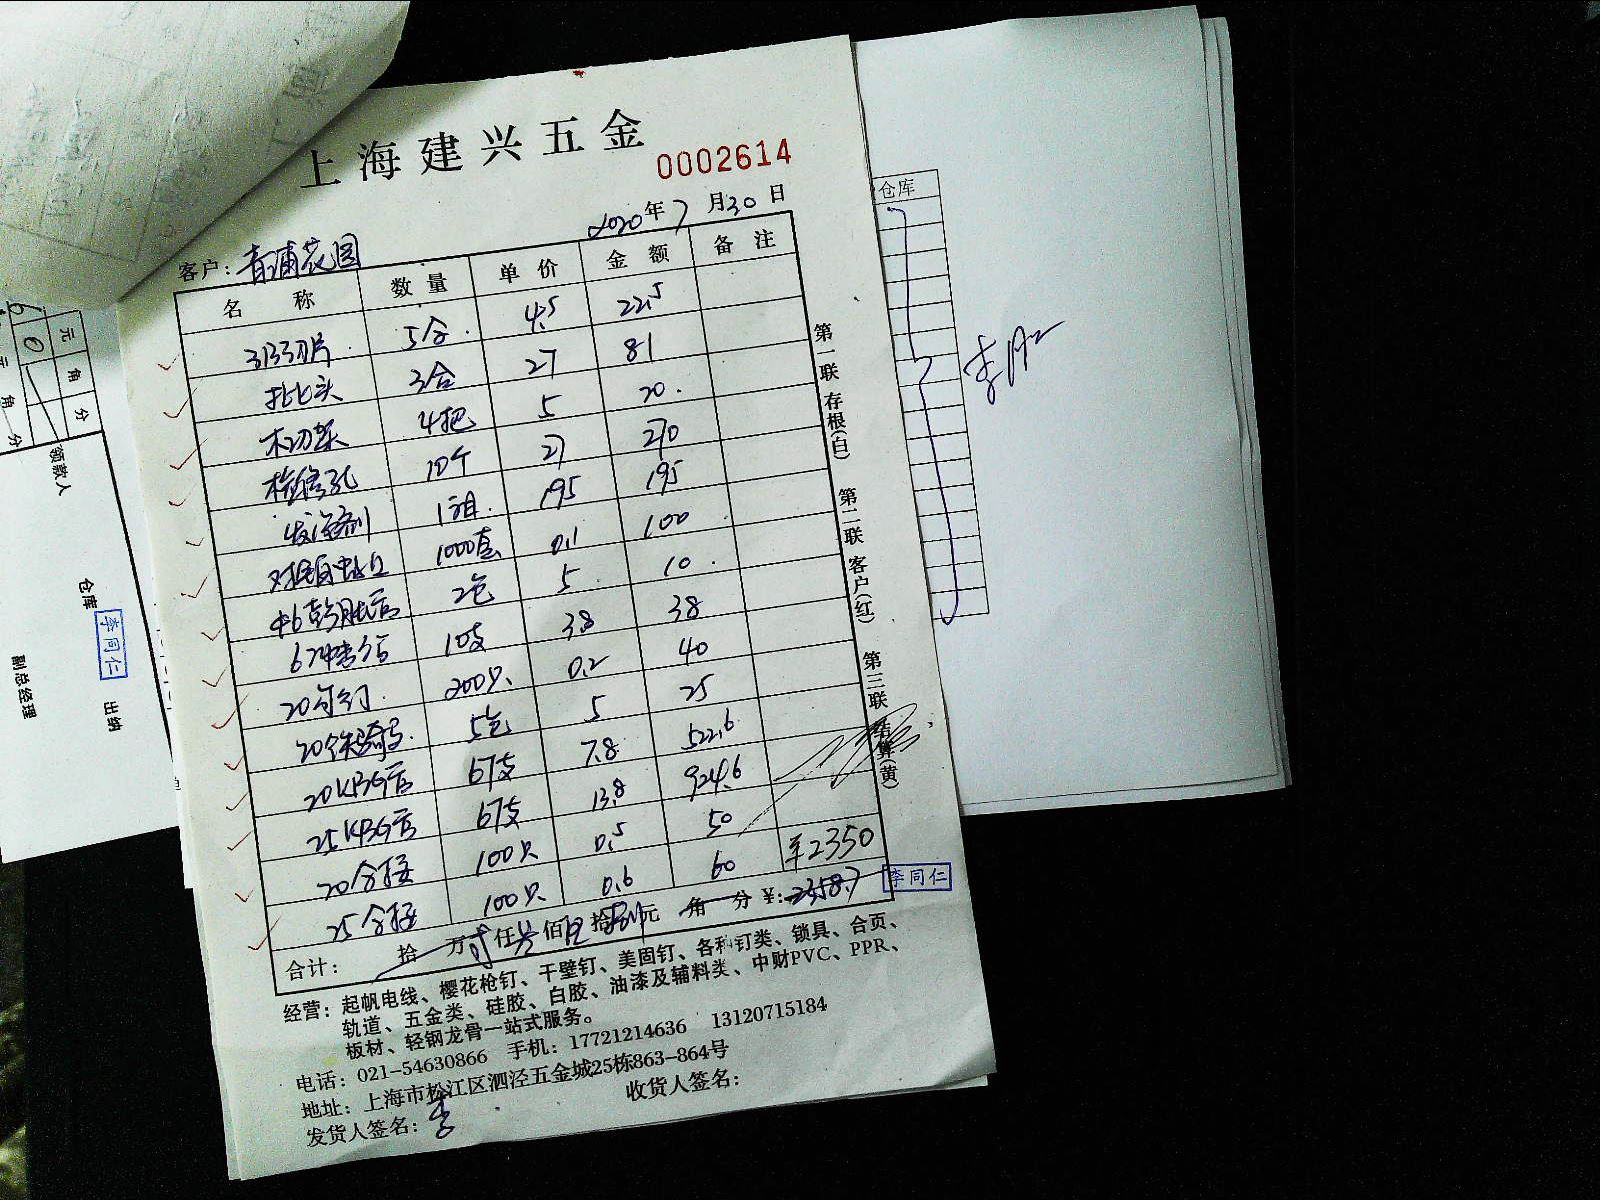 上海建兴五金
0002614
2020年7月30日
客户：青浦花园
名称 数量 单价 金额 备注
刀片 5合 4.5 22.5
批头 3合 27 81
4把 5 20
检修孔 10个 27 270
发泡剂 1箱 195 195
1000套 0.1 100
2包 5 10
10支 3.8 38
20 200只 0.2 40
20 5包 5 25
20KBG管 67支 7.8 522.6
25KBG管 67支 13.8 924.6
20合接 100只 0.5 50
25合接 100只 0.6 60
¥2350
合计： 拾 万 贰 仟 叁 佰 伍 拾 捌 元 角 分 ¥：2358.7
经营：起帆电线、樱花枪钉、干壁钉、美固钉、各种钉类、锁具、合页、
轨道、五金类、硅胶、白胶、油漆及辅料类、中财PVC、PPR、
板材、轻钢龙骨一站式服务。
电话：021-54630866 手机：17721214636 13120715184
地址：上海市松江区泗泾五金城25栋863-864号
发货人签名：李
收货人签名：
第一联 存根(白)
第二联 客户(红)
第三联 结算(黄)
李同仁
仓库
元 角 分
60
元 角 分
领款人
仓库
李同仁
出纳
副总经理